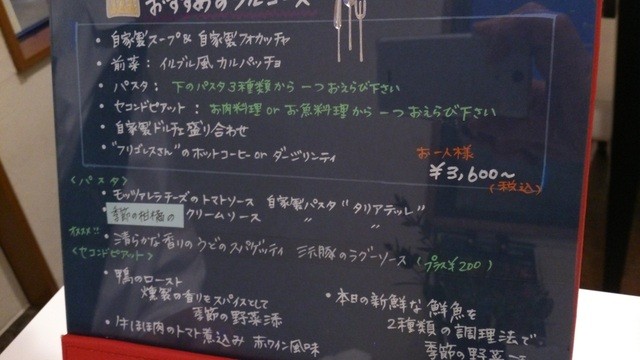 おすすめのフルコース
・自家製スープ& 自家製フォカッチャ
・前菜：イルブル風カルパッチョ
・パスタ：下のパスタ3種類から一つおえらび下さい
・セコンドピアット：お肉料理orお魚料理から一つおえらび下さい
・自家製ドルチェ盛り合わせ
・"フリゴレスさん"のホットコーヒーor ダージリンティ
お一人様
¥3,600〜
(税込)
<パスタ>
・モッツァレラチーズのトマトソース 自家製パスタ"タリアテッレ"
季節の柑橘の クリームソース 〃 〃
オススメ!!
・清らかな香りのうどのスパゲッティ 三元豚のラグーソース (プラス¥200)
<セコンドピアット>
・鴨のロースト
燻製の香りをスパイスとして
季節の野菜添
・牛ほほ肉のトマト煮込み 赤ワイン風味
・本日の新鮮な鮮魚を
2種類の調理法で
季節の野菜添